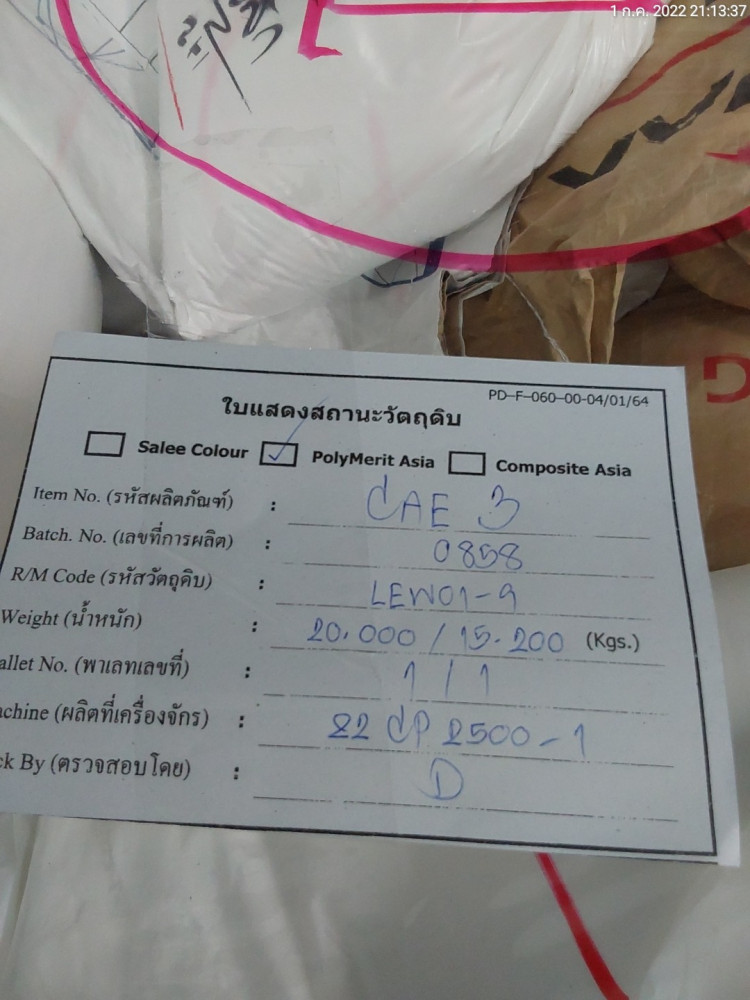 1 ก.ค. 2022 21:13:37
PD-F-060-00-04/01/64
ใบแสดงสถานะวัตถุดิบ
Salee Colour PolyMerit Asia Composite Asia
Item No. (รหัสผลิตภัณฑ์) : CAE 3
Batch. No. (เลขที่การผลิต) : 0858
R/M Code (รหัสวัตถุดิบ) : LEW01-9
Weight (น้ำหนัก) : 20.000 / 15.200 (Kgs.)
allet No. (พาเลทเลขที่) : 1 / 1
achine (ผลิตที่เครื่องจักร) : 22 CP 2500-1
ck By (ตรวจสอบโดย) : D